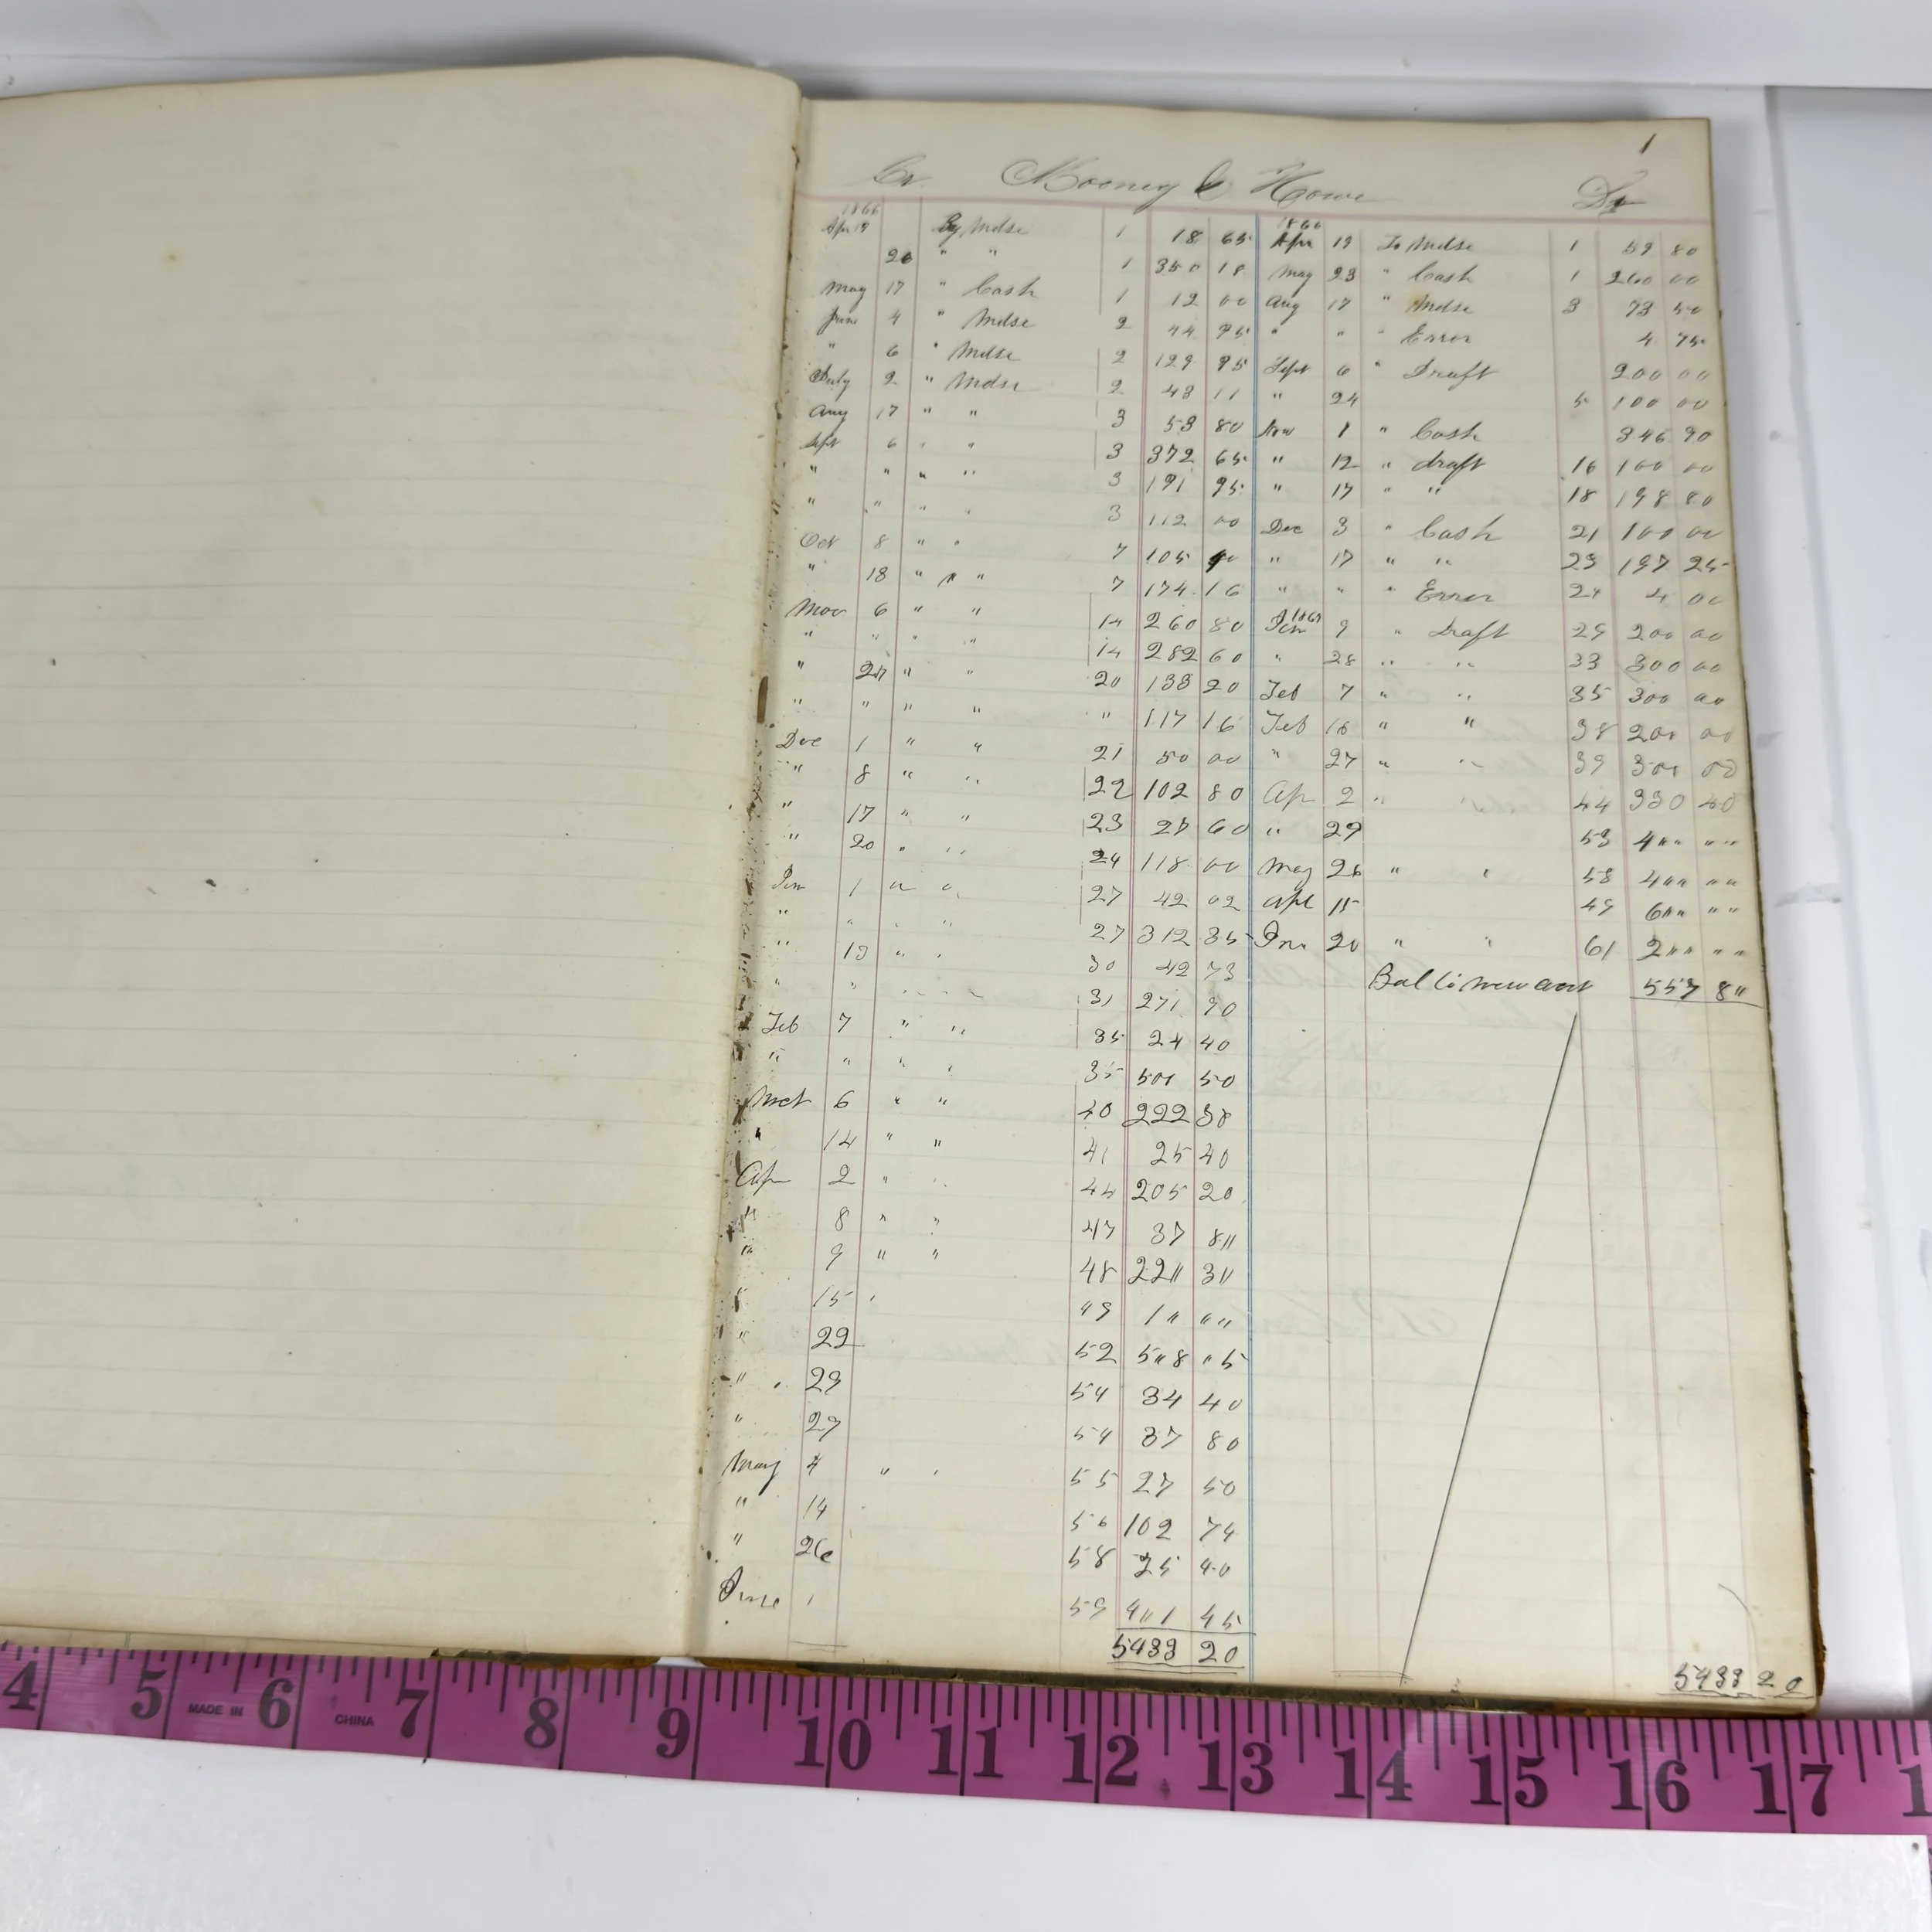 1
Cr. Mooney & Howe Dr
1866 1866
Apr 19 By Mdse 1 18 65 Apr 19 To Mdse 1 59 80
20 " " 1 350 18 May 23 " Cash 1 260 00
May 17 " Cash 1 12 00 Aug 17 " Mdse 3 73 50
June 4 " Mdse 2 44 95 " " " Error 4 75
" 6 " Mdse 2 129 95 Sept 6 " Draft 200 00
July 2 " Mdse 2 43 11 " 24 5 100 00
Aug 17 " " 3 53 80 Nov 1 " Cash 346 90
Sept 6 " " 3 372 65 " 12 " draft 16 100 00
" " " " 3 191 95 " 17 " " 18 198 80
" " " " 3 112 00 Dec 3 " Cash 21 100 00
Oct 8 " " 7 105 " 17 " " 23 197 25
" 18 " " 7 174 16 " " " Error 24 4 00
Nov 6 " " 14 260 80 Jan 1867 9 " Draft 29 200 00
" " " " 14 282 60 " 28 " " 33 300 00
" 27 " " 20 133 20 Feb 7 " " 35 300 00
" " " " " 117 16 Feb 18 " " 38 200 00
Dec 1 " " 21 50 00 " 27 " " 39 300 00
" 8 " " 22 102 80 Ap 2 " " 44 330 40
" 17 " " 23 27 60 " 29 53 4"" ""
" 20 " " 24 118 00 May 26 " " 58 4"" ""
Jan 1 " " 27 42 02 Apl 15 49 6"" ""
" " " " 27 312 35 Jun 20 " " 61 2"" ""
" 13 " " 30 42 73 Bal to new acct 557 8"
" " " " 31 271 90
Feb 7 " " 35 24 40
" " " " 35 500 50
Mch 6 " " 40 222 38
" 14 " " 41 25 40
Ap 2 " " 44 205 20
" 8 " " 47 37 8"
" 9 " " 48 22" 3"
" 15 " 49 1"" ""
" 22 52 5"8 "5
" 23 54 34 40
" 29 54 37 80
May 4 " " 55 27 50
" 14 56 102 74
" 26 58 25 40
June 1 59 4"1 45
5433 20 5433 20
4 5 6 7 8 9 10 11 12 13 14 15 16 17 1
MADE IN
CHINA